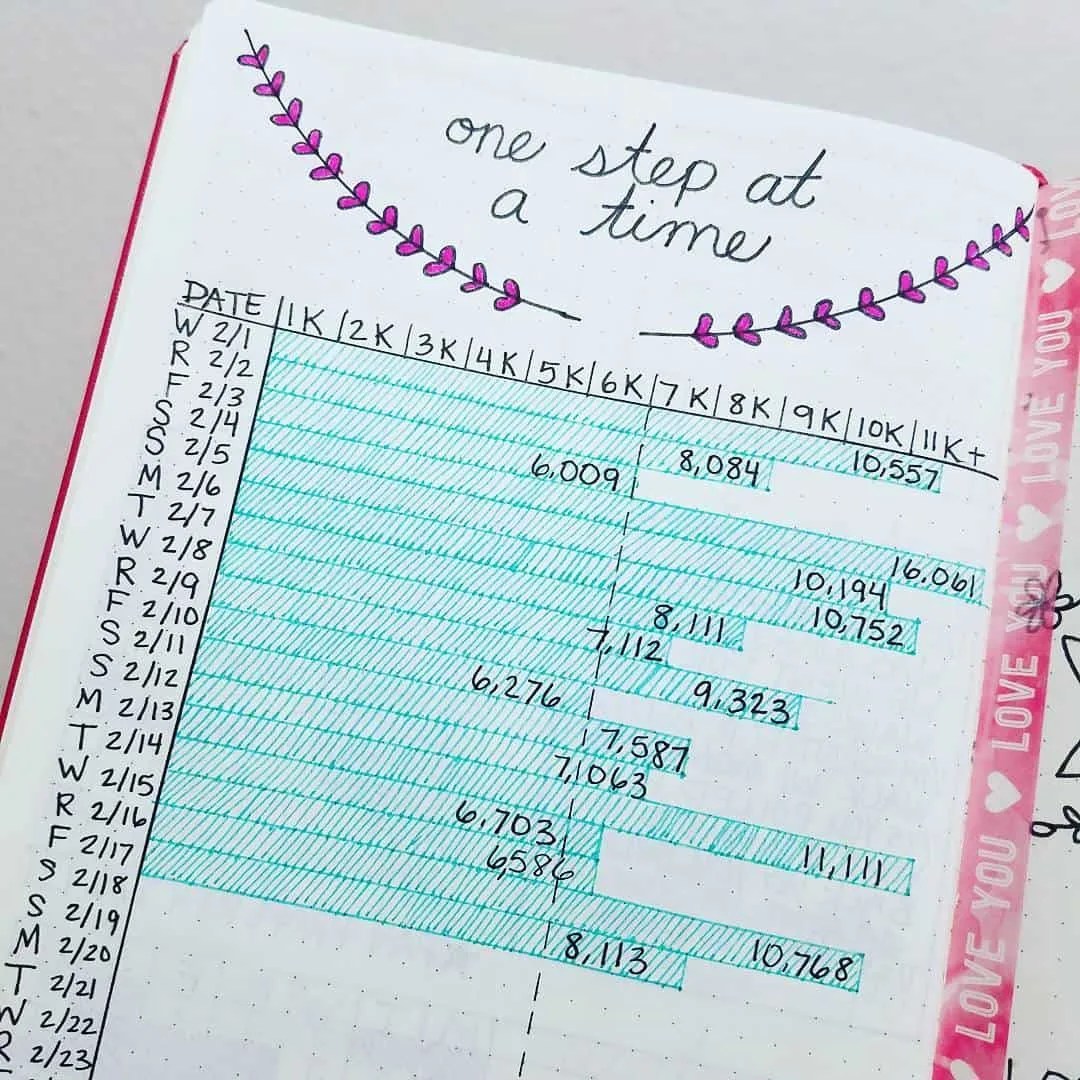 one step at
a time
DATE 1K 2K 3K 4K 5K 6K 7K 8K 9K 10K 11K+
W 2/1 10,557
R 2/2 8,084
F 2/3 6,009
S 2/4 16,061
S 2/5 10,194
M 2/6 10,752
T 2/7 8,111
W 2/8 7,112
R 2/9 9,323
F 2/10 6,276
S 2/11 7,587
S 2/12 7,1063
M 2/13 11,111
T 2/14 6,703
W 2/15 6,586
R 2/16 10,768
F 2/17 8,113
S 2/18
S 2/19
M 2/20
T 2/21
W 2/22
R 2/23
LOVE YOU ♥ LOVE YOU ♥ LOVE YOU ♥ LOV